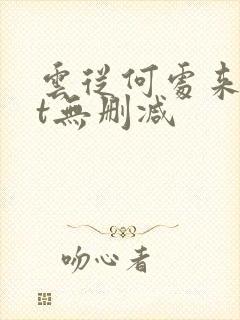 雲從何處来
t無删减
吻心者